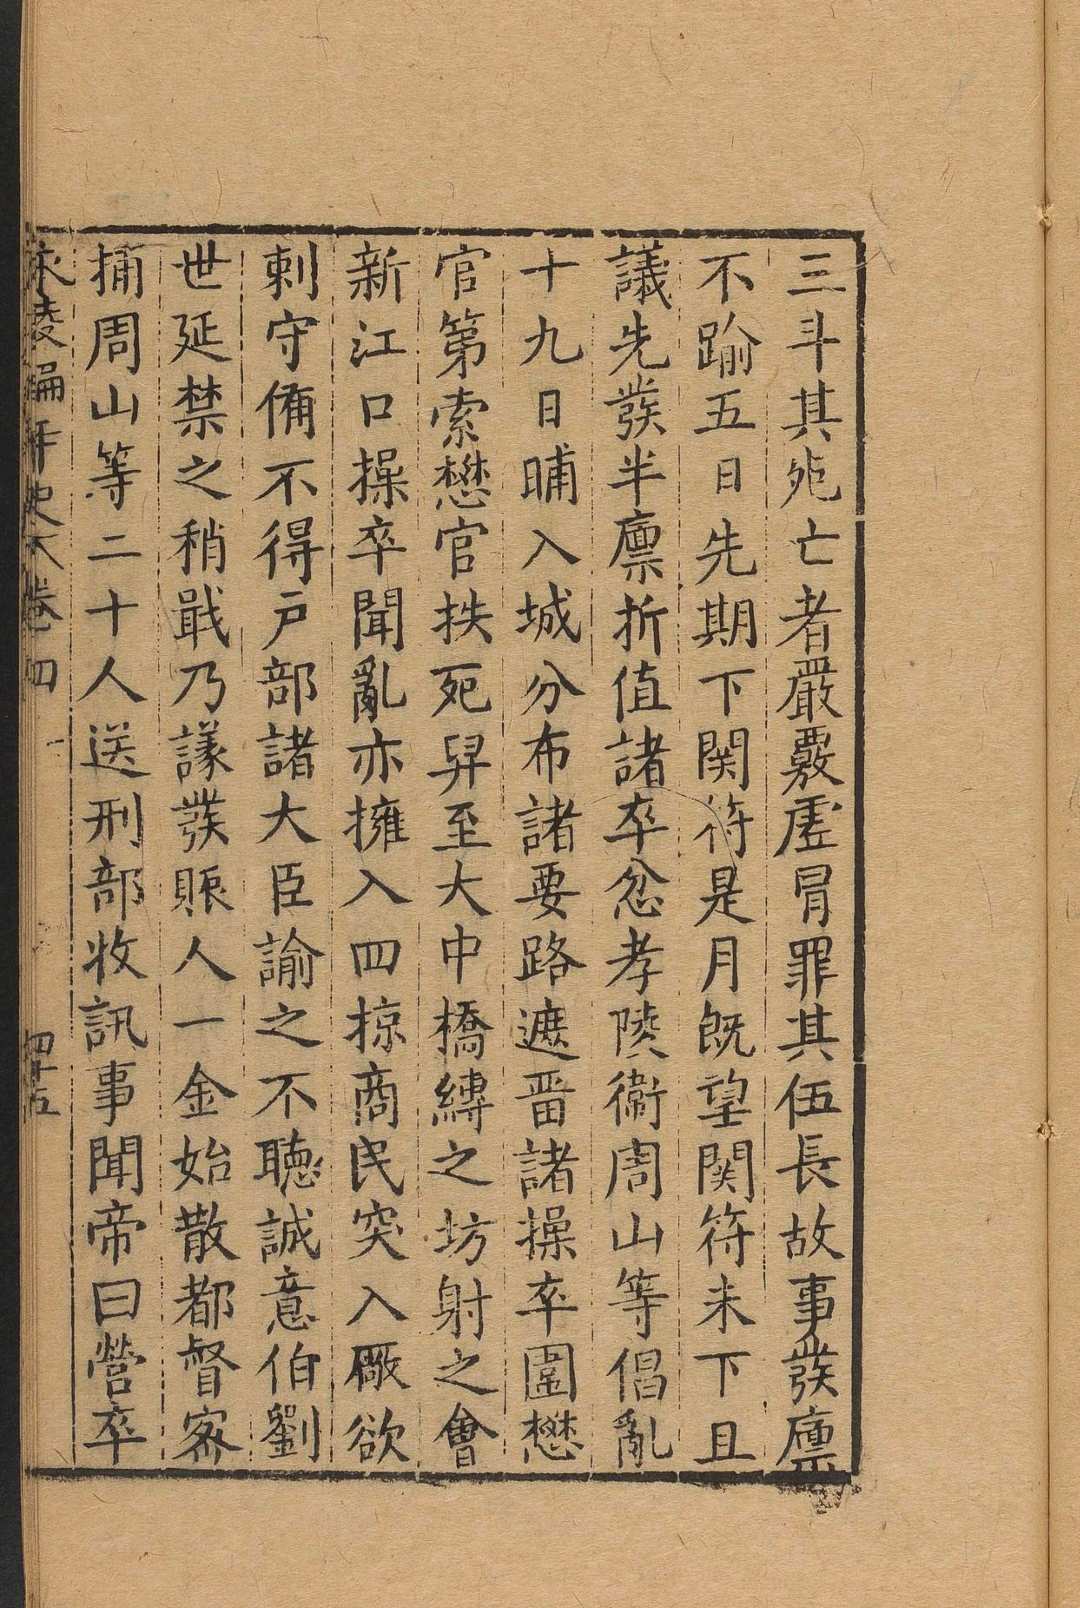 三斗其死亡者嚴覈虛冒罪其伍長故事發廩
不踰五日先期下関符是月既望関符未下且
議先發半廩折值諸卒忿孝陵衞周山等倡亂
十九日晡入城分布諸要路遮畱諸操卒圍懋
官第索懋官抶死舁至大中橋縛之坊射之會
新江口操卒聞亂亦擁入四掠商民突入厰欲
剌守俻不得戸部諸大臣諭之不聽誠意伯劉
世延禁之稍戢乃議發賑人一金始散都督宻
捕周山等二十人送刑部收訊事聞帝曰營卒
永陵編年史 卷四
四十五